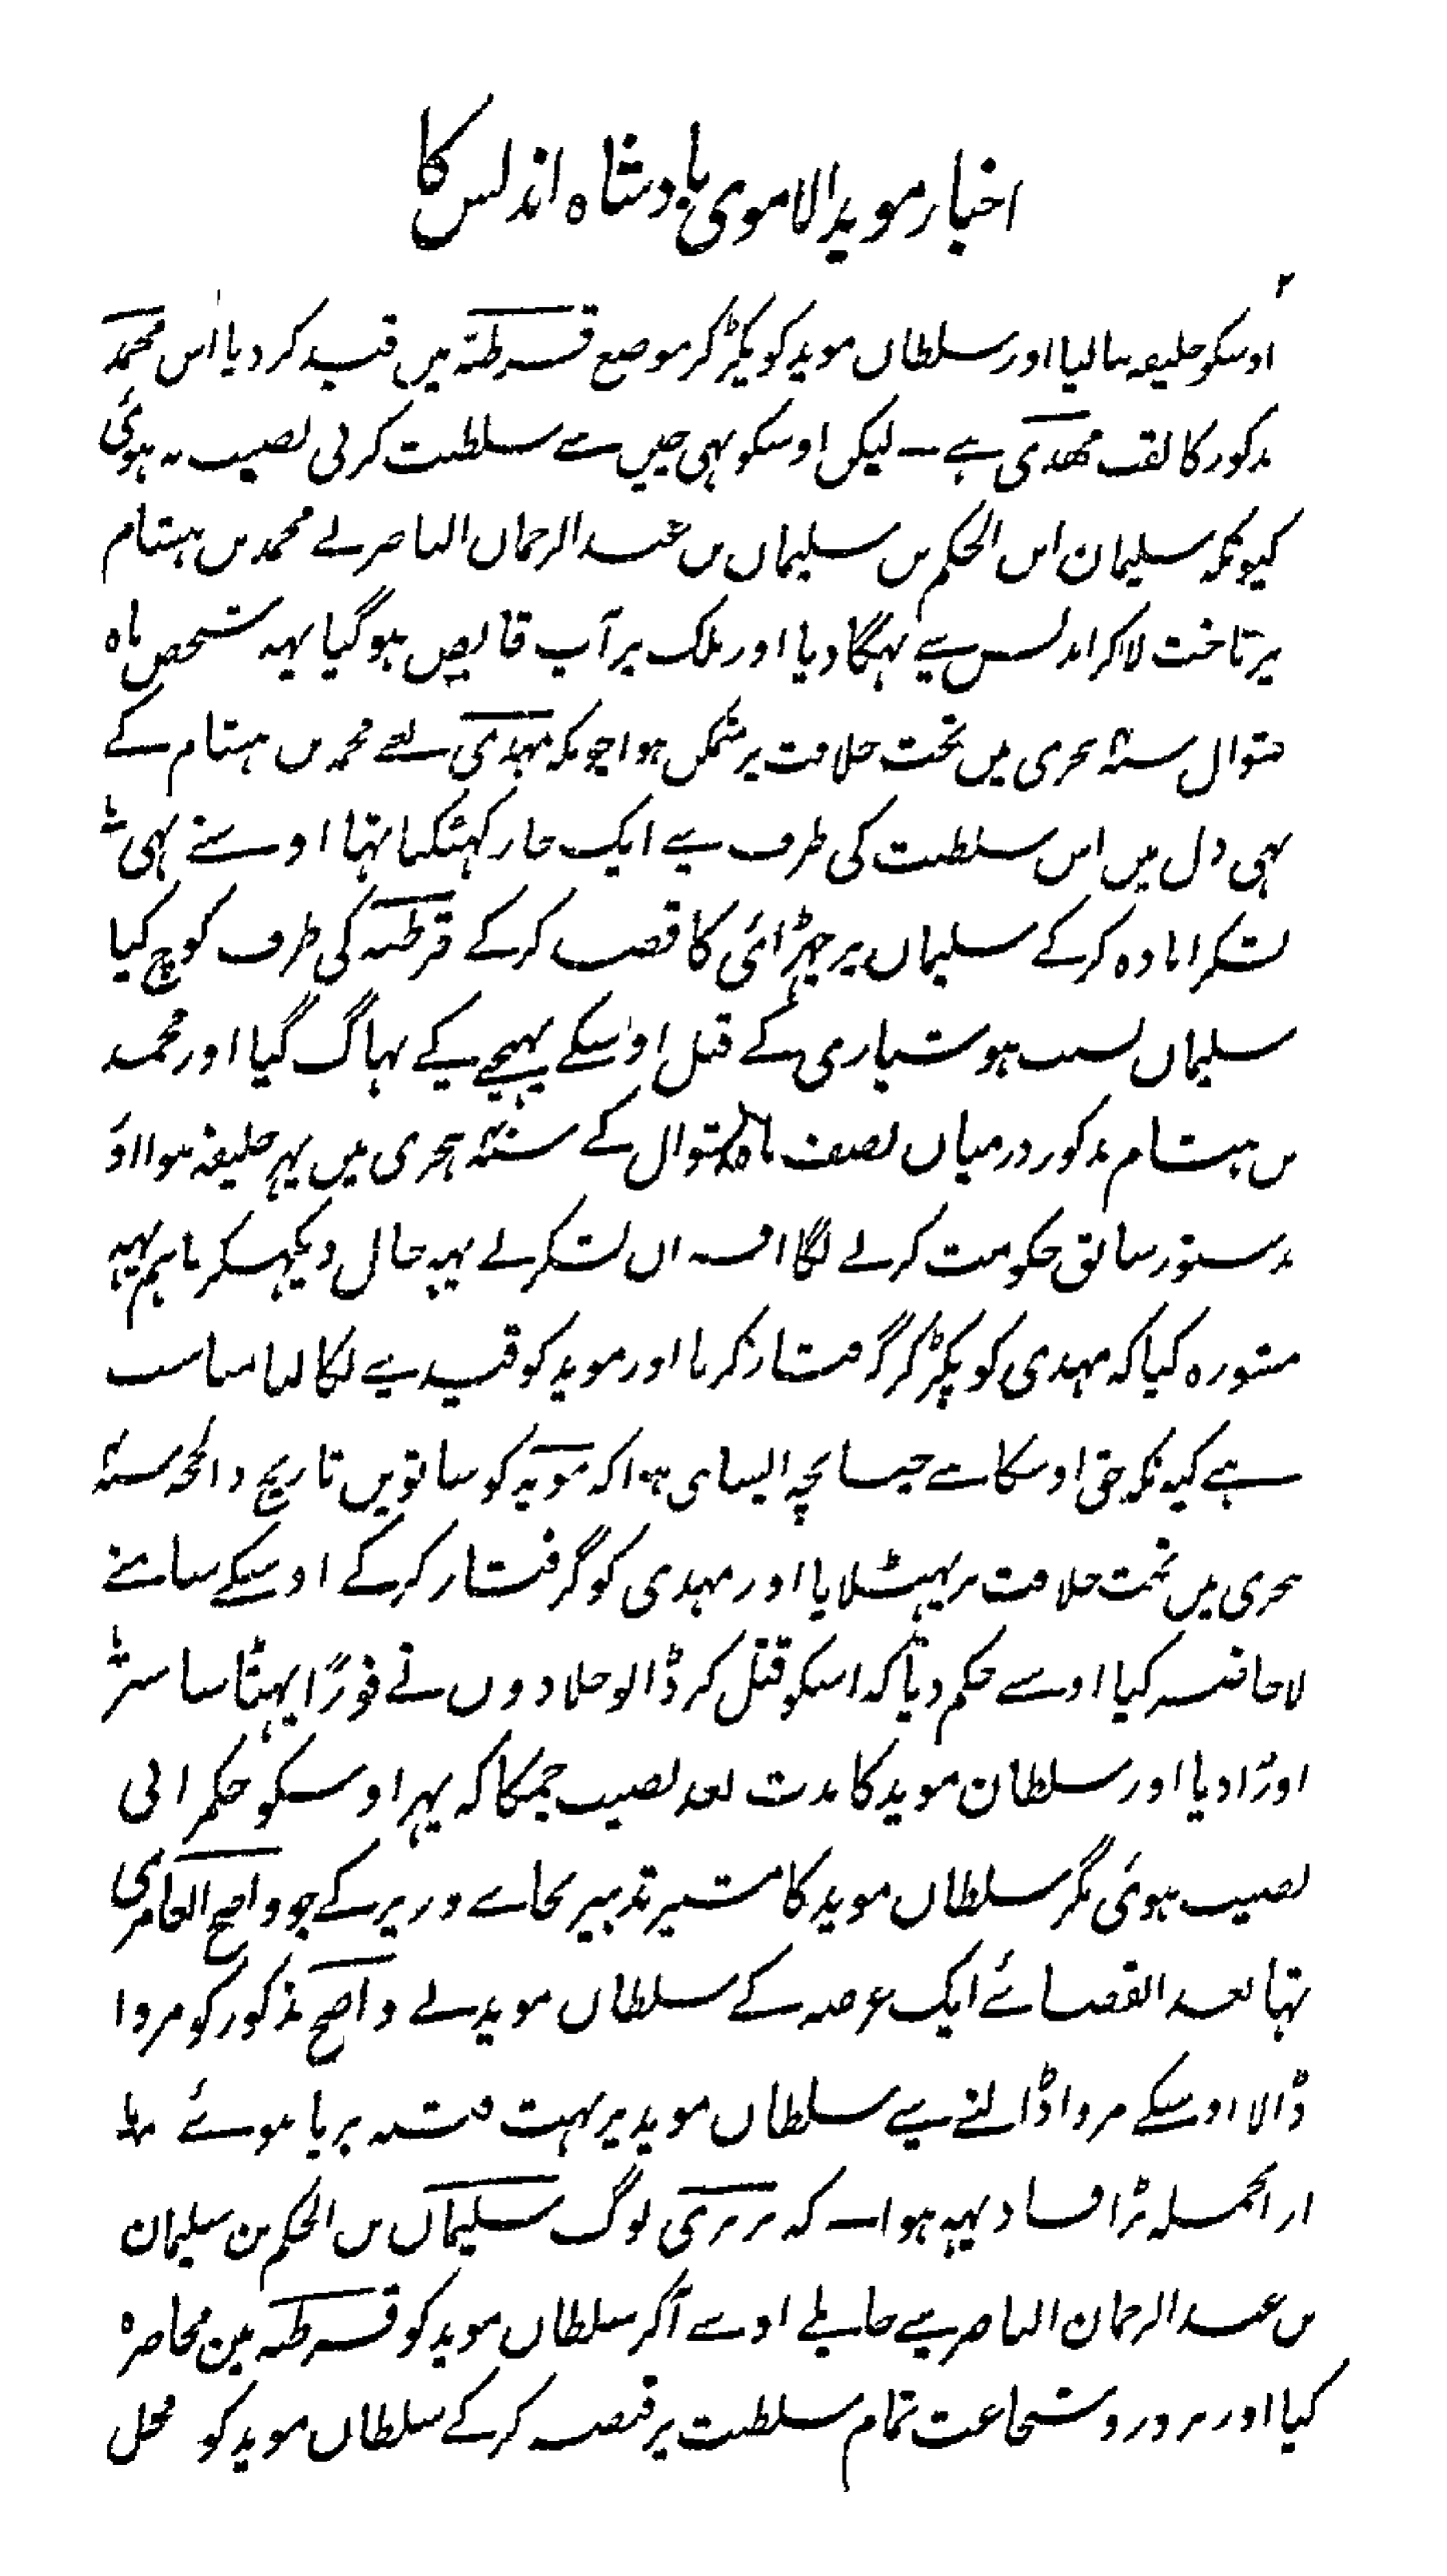 اخبار مويد الاموی بادشاہ اندلس کا
۲
اوسکو خلیفہ بنا لیا اور سلطان موید کو پکڑ کر موضع قرطبہ میں قید کر دیا اس محمد
مذکور کا لقب مھدی ہے ۔ لیکن اوسکو بہی چین سے سلطنت کرنی نصیب نہ ہوئی
کیونکہ سلیمان ابن الحکم بن سلیمان بن عبد الرحمان الناصر نے محمد بن ہشام
پر تاخت لا کر اندلس سے بہگا دیا اور ملک پر آپ قابض ہو گیا یہہ شخص ماہ
شوال سنہ ہجری میں تخت خلافت پر متمکن ہوا چونکہ مہدی لعنے محمد بن ہشام کے
بہی دل میں اس سلطنت کی طرف سے ایک خار کہٹکتا تہا اوسنے بہی
لشکر امادہ کر کے سلیمان پر چہڑائی کا قصد کر کے قرطبہ کی طرف کوچ کیا
سلیمان بسبب ہوشیاری کے قبل اوسکے پہنچنے کے بہاگ گیا اور محمد
بن ہشام مذکور درمیان نصف ماہ شوال کے سنہ ہجری میں پہر خلیفہ ہوا اور
بدستور سابق حکومت کرنے لگا افسران لشکر نے یہہ حال دیکہکر باہم یہہ
مشورہ کیا کہ مہدی کو پکڑ کر گرفتار کرنا اور موید کو قید سے نکالنا مناسب
ہے کیونکہ حق اوسکا ہے چنانچہ ایسا ہی ہوا کہ موید کو ساتویں تاریخ ذالحجہ سنہ
ہجری میں تخت خلافت پر بہٹلایا اور مہدی کو گرفتار کر کے اوسکے سامنے
لا حاضر کیا اوسنے حکم دیا کہ اسکو قتل کر ڈالو جلادوں نے فورًا بہٹا سا سر
اوڑا دیا اور سلطان موید کا مدت بعد نصیب چمکا کہ پہر اوسکو حکمرانی
نصیب ہوئی مگر سلطان موید کا مشیر تدبیر بجائے وزیر کے جو واضح العامری
تہا بعد انقضائے ایک عرصہ کے سلطان موید نے واضح مذکور کو مروا
ڈالا اوسکے مروا ڈالنے سے سلطان موید پر بہت فتنہ برپا ہوئے
ازانجملہ بڑا فساد یہہ ہوا ۔ کہ بربری لوگ سلیمان بن الحکم بن سلیمان
بن عبد الرحمان الناصر سے جا ملے اوسنے آکر سلطان موید کو قرطبہ مین محاصرہ
کیا اور بزور و شجاعت تمام سلطنت پر قبضہ کر کے سلطان موید کو محل